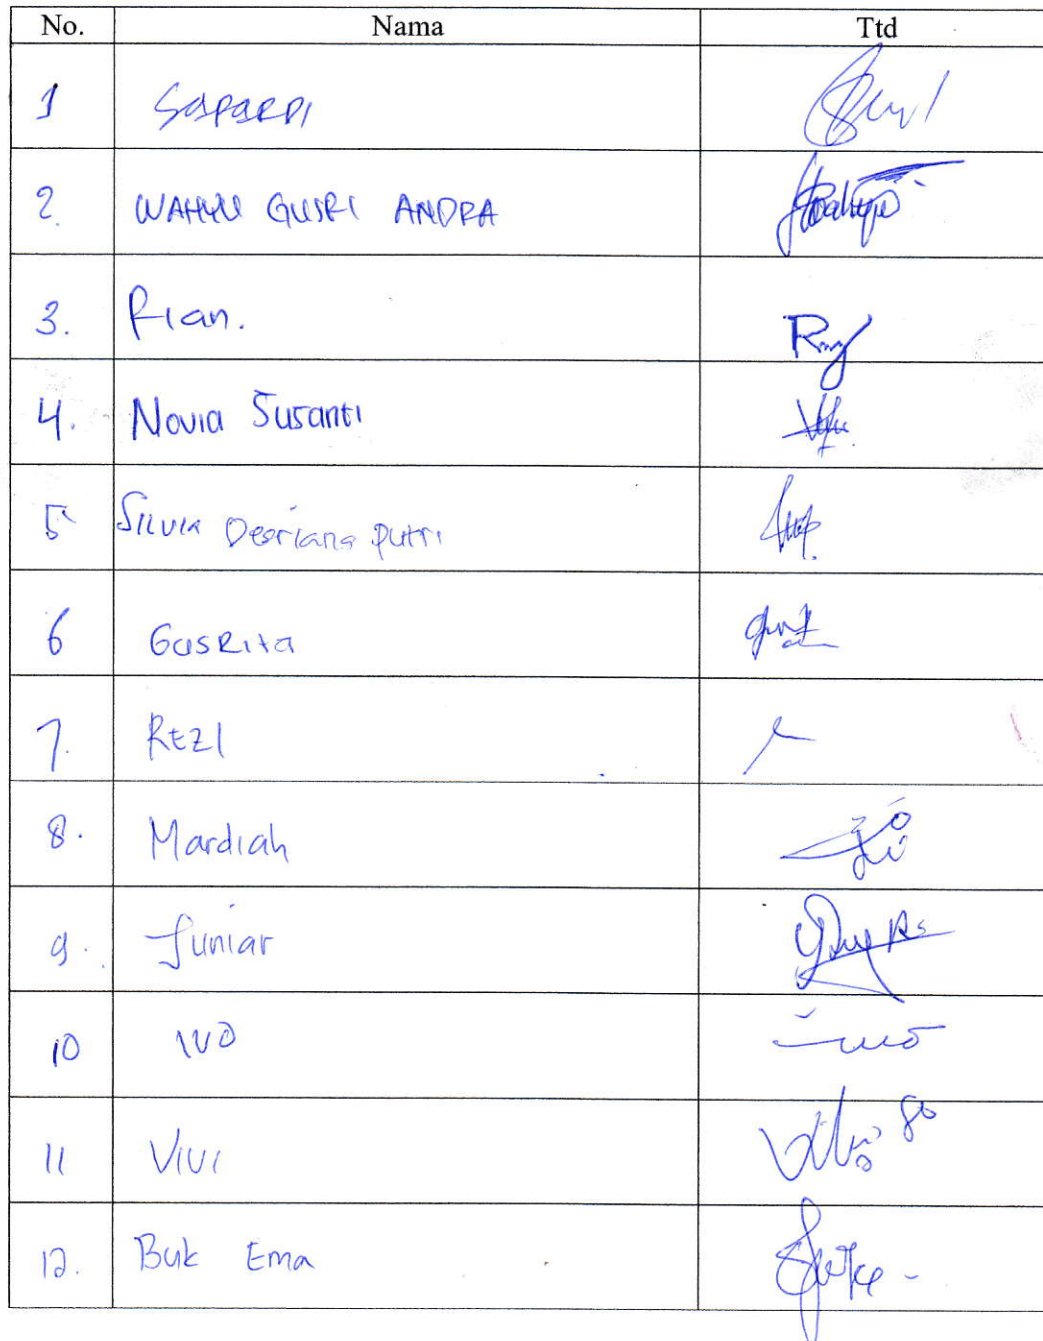 No. Nama Ttd
1 SAPARDI
2. WAHYU GUSRI ANDRA
3. Rian.
4. Novia Susanti
5 Silvia Desriana Putri
6 GUSRITA
7. REZI
8. Mardiah
9. Juniar
10 IVO
11 VIVI
12. Buk Ema